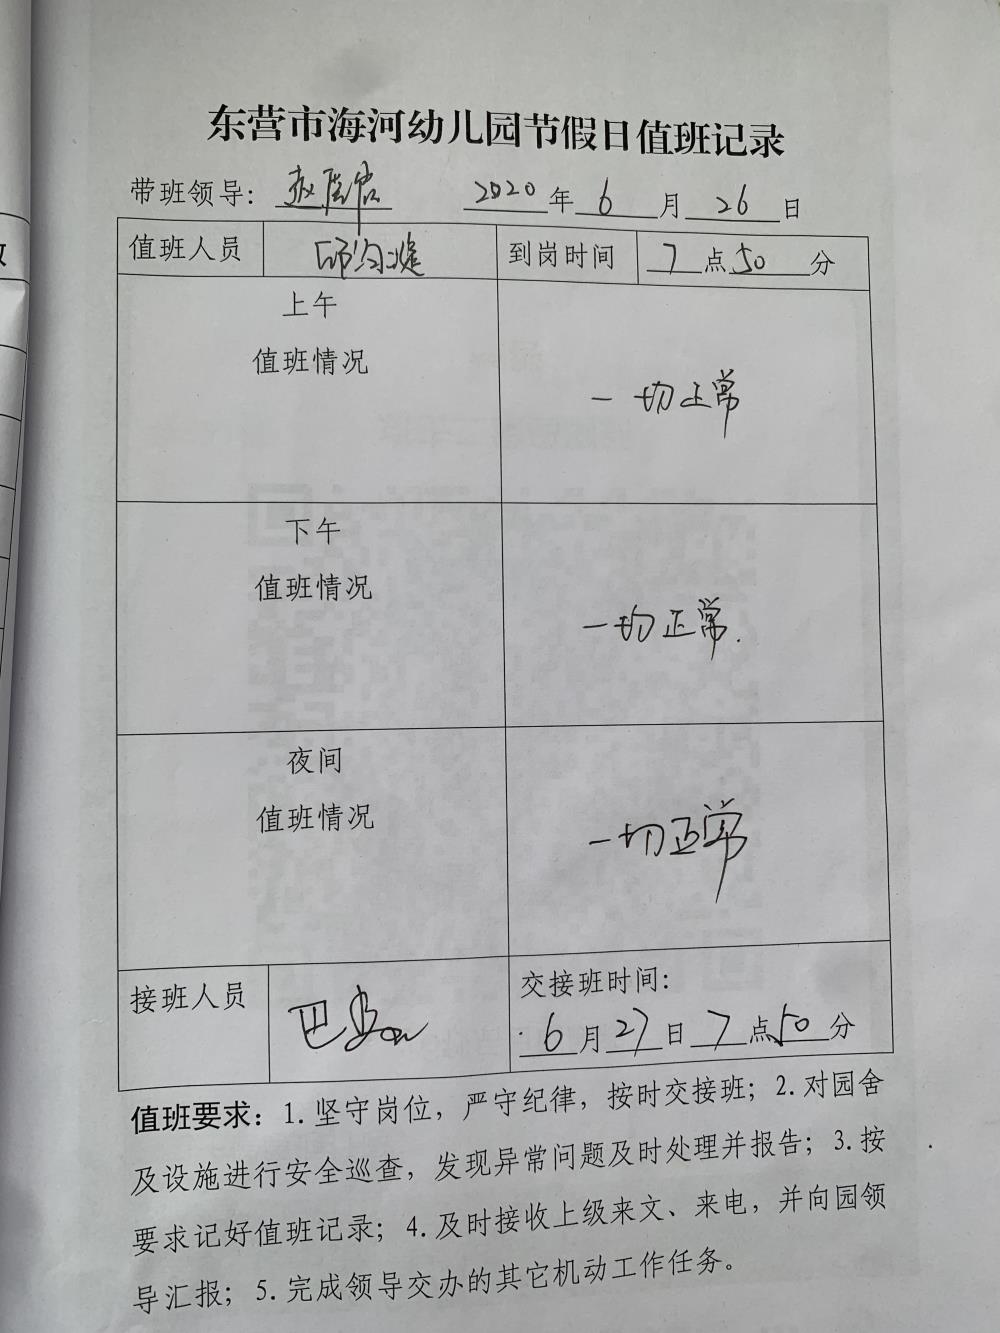 东营市海河幼儿园节假日值班记录
带班领导: 2020年6月26日
值班人员 到岗时间 7点50分
上午
值班情况
一切正常
下午
值班情况
一切正常.
夜间
值班情况
一切正常
接班人员 交接班时间:
6月27日7点50分
值班要求: 1.坚守岗位, 严守纪律, 按时交接班; 2.对园舍
及设施进行安全巡查, 发现异常问题及时处理并报告; 3.按
要求记好值班记录; 4.及时接收上级来文、来电, 并向园领
导汇报; 5.完成领导交办的其它机动工作任务。